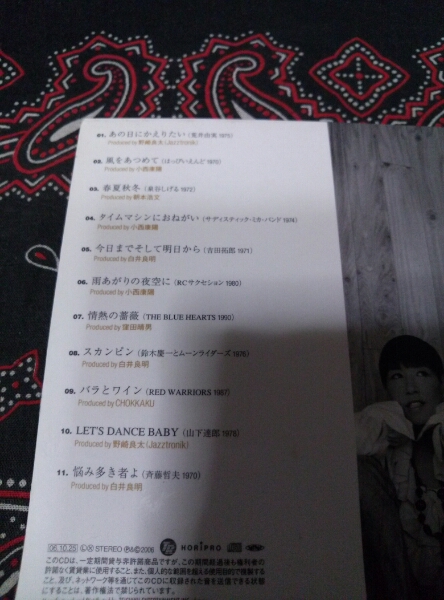 01. あの日にかえりたい (荒井由実 1975)
Produced by 野崎良太(Jazztronik)
02. 風をあつめて (はっぴいえんど 1970)
Produced by 小西康陽
03. 春夏秋冬 (泉谷しげる 1972)
Produced by
04. タイムマシンにおねがい (サディスティック・ミカ・バンド 1974)
Produced by 小西康陽
05. 今日までそして明日から (吉田拓郎 1971)
Produced by 白井良明
06. 雨あがりの夜空に (RCサクセション 1980)
Produced by 小西康陽
07. 情熱の薔薇 (THE BLUE HEARTS 1990)
Produced by 窪田晴男
08. スカンピン (鈴木慶一とムーンライダーズ 1976)
Produced by 白井良明
09. バラとワイン (RED WARRIORS 1987)
Produced by CHOKKAKU
10. LET'S DANCE BABY (山下達郎 1978)
Produced by 野崎良太(Jazztronik)
11. 悩み多き者よ (斉藤哲夫 1970)
Produced by 白井良明
06.10.25 STEREO ℗©2006 HORIPRO
このCDは、一定期間貸与非許諾商品ですが、この期間経過後も権利者の
許諾なく賃貸業に使用すること、また、個人的な範囲を超える使用目的で複製する
こと、及び、ネットワーク等を通じてこのCDに収録された音を送信できる状態
にすることは、著作権法で禁じられています。